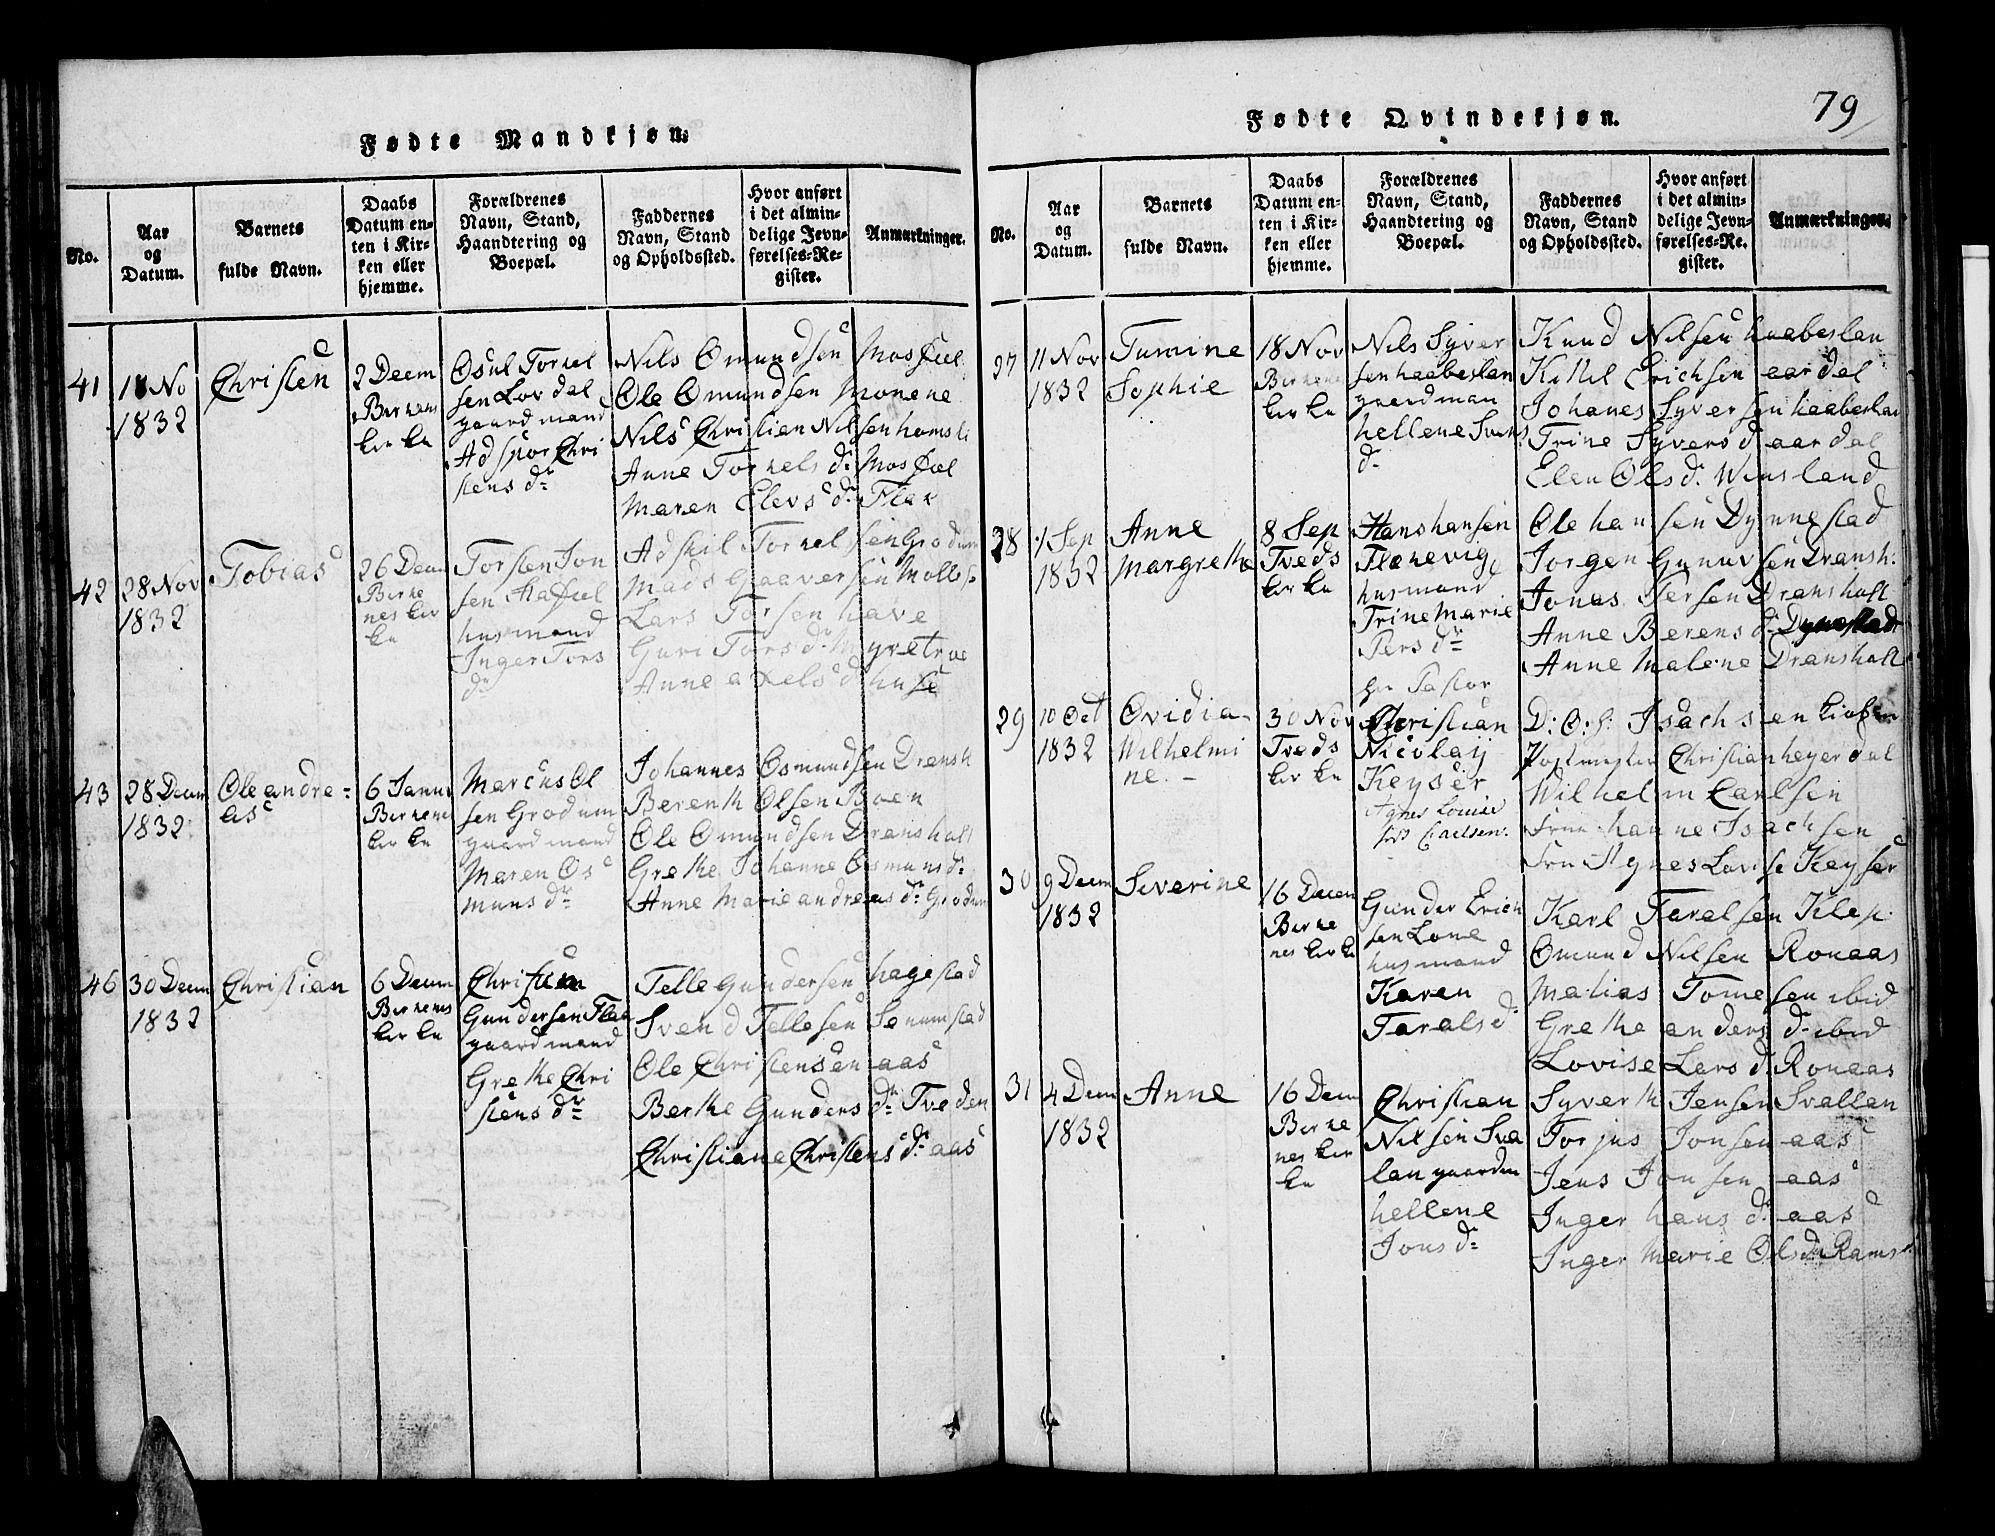 Fødte Mandkjøn.
No.
Aar
og
Datum.
Barnets
fulde Navn.
Daabs
Datum en-
ten i Kir-
ken eller
hjemme.
Forældrenes
Navn, Stand,
Haandtering og
Boepæl.
Faddernes
Navn, Stand
og Opholdssted.
Hvor anført
i det almin-
delige Jevn-
førelses-Re-
gister.
Anmærkninger.
41
11 No
1832
Christen
2 Decm
Birkenes
kirke
Osul Torkel
sen Lovdal
gaardmand
Christens dr
Nils Omundsen Mosfiel
Ole Omundsen Monene
Nils Christian Nilsen
Anne Torkels dr Mosfiel
Maren Elevs dr Flak
42
28 Nov
1832
Tobias
26 Decm
Birke
nes kir
ke
Torsten Jon
sen
husmand
Inger Tors
dr
Adskil Torkelsen Grodum
Mads Gaaversen
Lars Torsen have
Guri Tors dr Myretrae
Anne axels dr huse
43
28 Decm
1832
Ole andre-
as
6 Janu
Birkenes
kirke
Marcus Ol
sen Grodum
gaardmand
Maren Os
muns dr
Johannes Osmundsen Dransh
Berenth Olsen Boen
Ole Omundsen Dransholt
Grethe Johanne Osmuns dr
Anne Marie andreas dr Grodum
46
30 Decm
1832
Christian
6 Decm
Birkenes
kirke
Christen
Gundersen Flak
gaardmand
Grethe Chri
stens dr
Telle Gundersen hagestad
Svend Tellesen Senumstad
Ole Christensen aas
Berthe Gunders dr Tveden
Christiane Christens dr aas
79
Fødte Qvindekjøn.
No.
Aar
og
Datum.
Barnets
fulde Navn.
Daabs
Datum en-
ten i Kir-
ken eller
hjemme.
Forældrenes
Navn, Stand,
Haandtering og
Boepæl.
Faddernes
Navn, Stand
og Opholdssted.
Hvor anført
i det almin-
delige Jevn-
førelses-Re-
gister.
Anmærkninger.
27
11 Nov
1832
Tumine
Sophie
18 Nov
Birkenes
kirke
Nils Syver
sen haabeslan
gaardman
hellene Svens
dr
Knud Nilsen haabeslan
Kittel Erichsen aardal
Johanes Syversen haabeslan
Trine Syvers d aardal
Elen Ols d. Winsland
28
1 Sep
1832
Anne
Margrethe
8 Sep
Tveds
kirke
Hans hansen
Flakevig
husmand
Trine Marie
Pers dr
Ole hansen Dynnestad
Jorgen Gunuvsen Dransh:
Jonas Persen Dransholt
Anne Berens dr Dynestad
Anne Malene Dransholt
29
10 Oct
1832
Ovidia
Wilhelmi
ne.
30 Nov
Tveds
kirke
her Pastor
Christian
Nicolay
Keyser
Agnes Louise
Carlsen.
D: O: S: Isachsen
Postmester Christian heyerdal
Wilhelm Carlsen
Fru hanne Isachsen
Fru Agnes Lovise Keyser
30
9 Decm
1832
Severine
16 Decem
Birke
nes kirke
Gunder Erich
sen Lone
husmand
Karen
Tarals d
Karl Taralsen Klep:
Omund Nilsen Ronaas
Matias Tomesen ibid
Grethe anders d ibid
Lovise Lars d. Ronaas
31
4 Decm
1832
Anne
16 Dem
Birke
nes kir
ke
Christian
Nilsen Sva
lan gaarden
hellene
Jons dr
Syverth Jensen Svallan
Torjus Jonsen aas
Jens Jonsen aas
Inger hans d. aas
Inger Marie Ols d. Rams